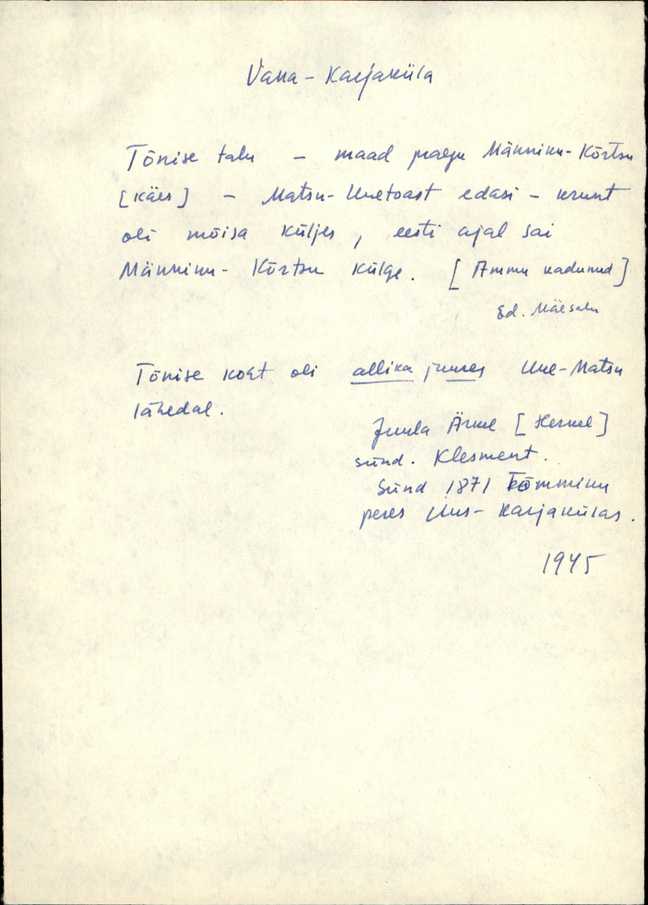 Vana-Karjaküla
Tõnise talu – maad praegu Männiku-Kõrtsu
[käes] – Matsu-Uuetoast edasi – krunt
oli mõisa küljes, eesti ajal sai
Männiku-Kõrtsu külge. [Ammu kadunud]
Ed. Mäesalu
Tõnise koht oli allika juures Uue-Matsu
lähedal.
Juula Ärme [Hermel]
sünd. Klesment.
Sünd 1871 Tõmmiku
peres Uus-Karjakülas.
1945